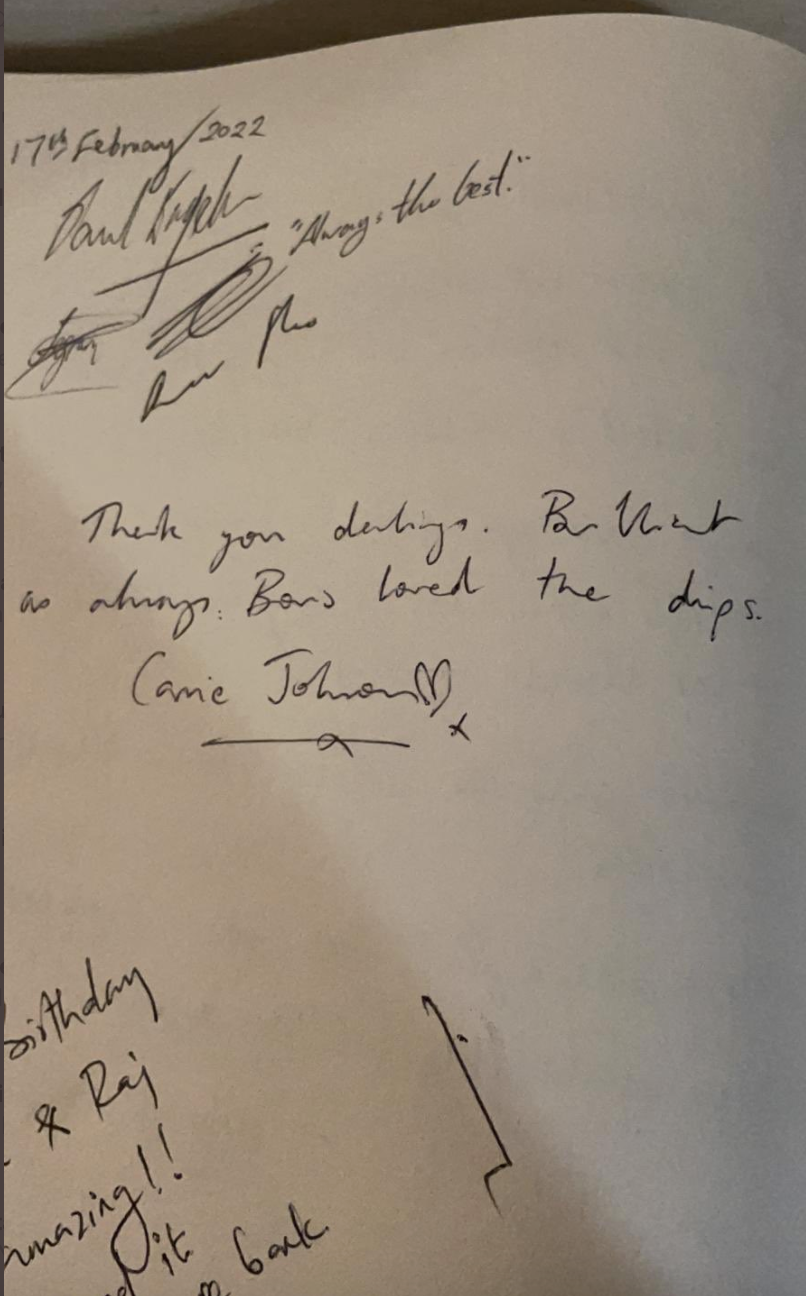 17th February/2022
"Always the best."
Thank you darlings. Brilliant
as always. Boris loved the drips.
Carrie Johnson
x
Birthday
& Raj
amazing!!
it
back